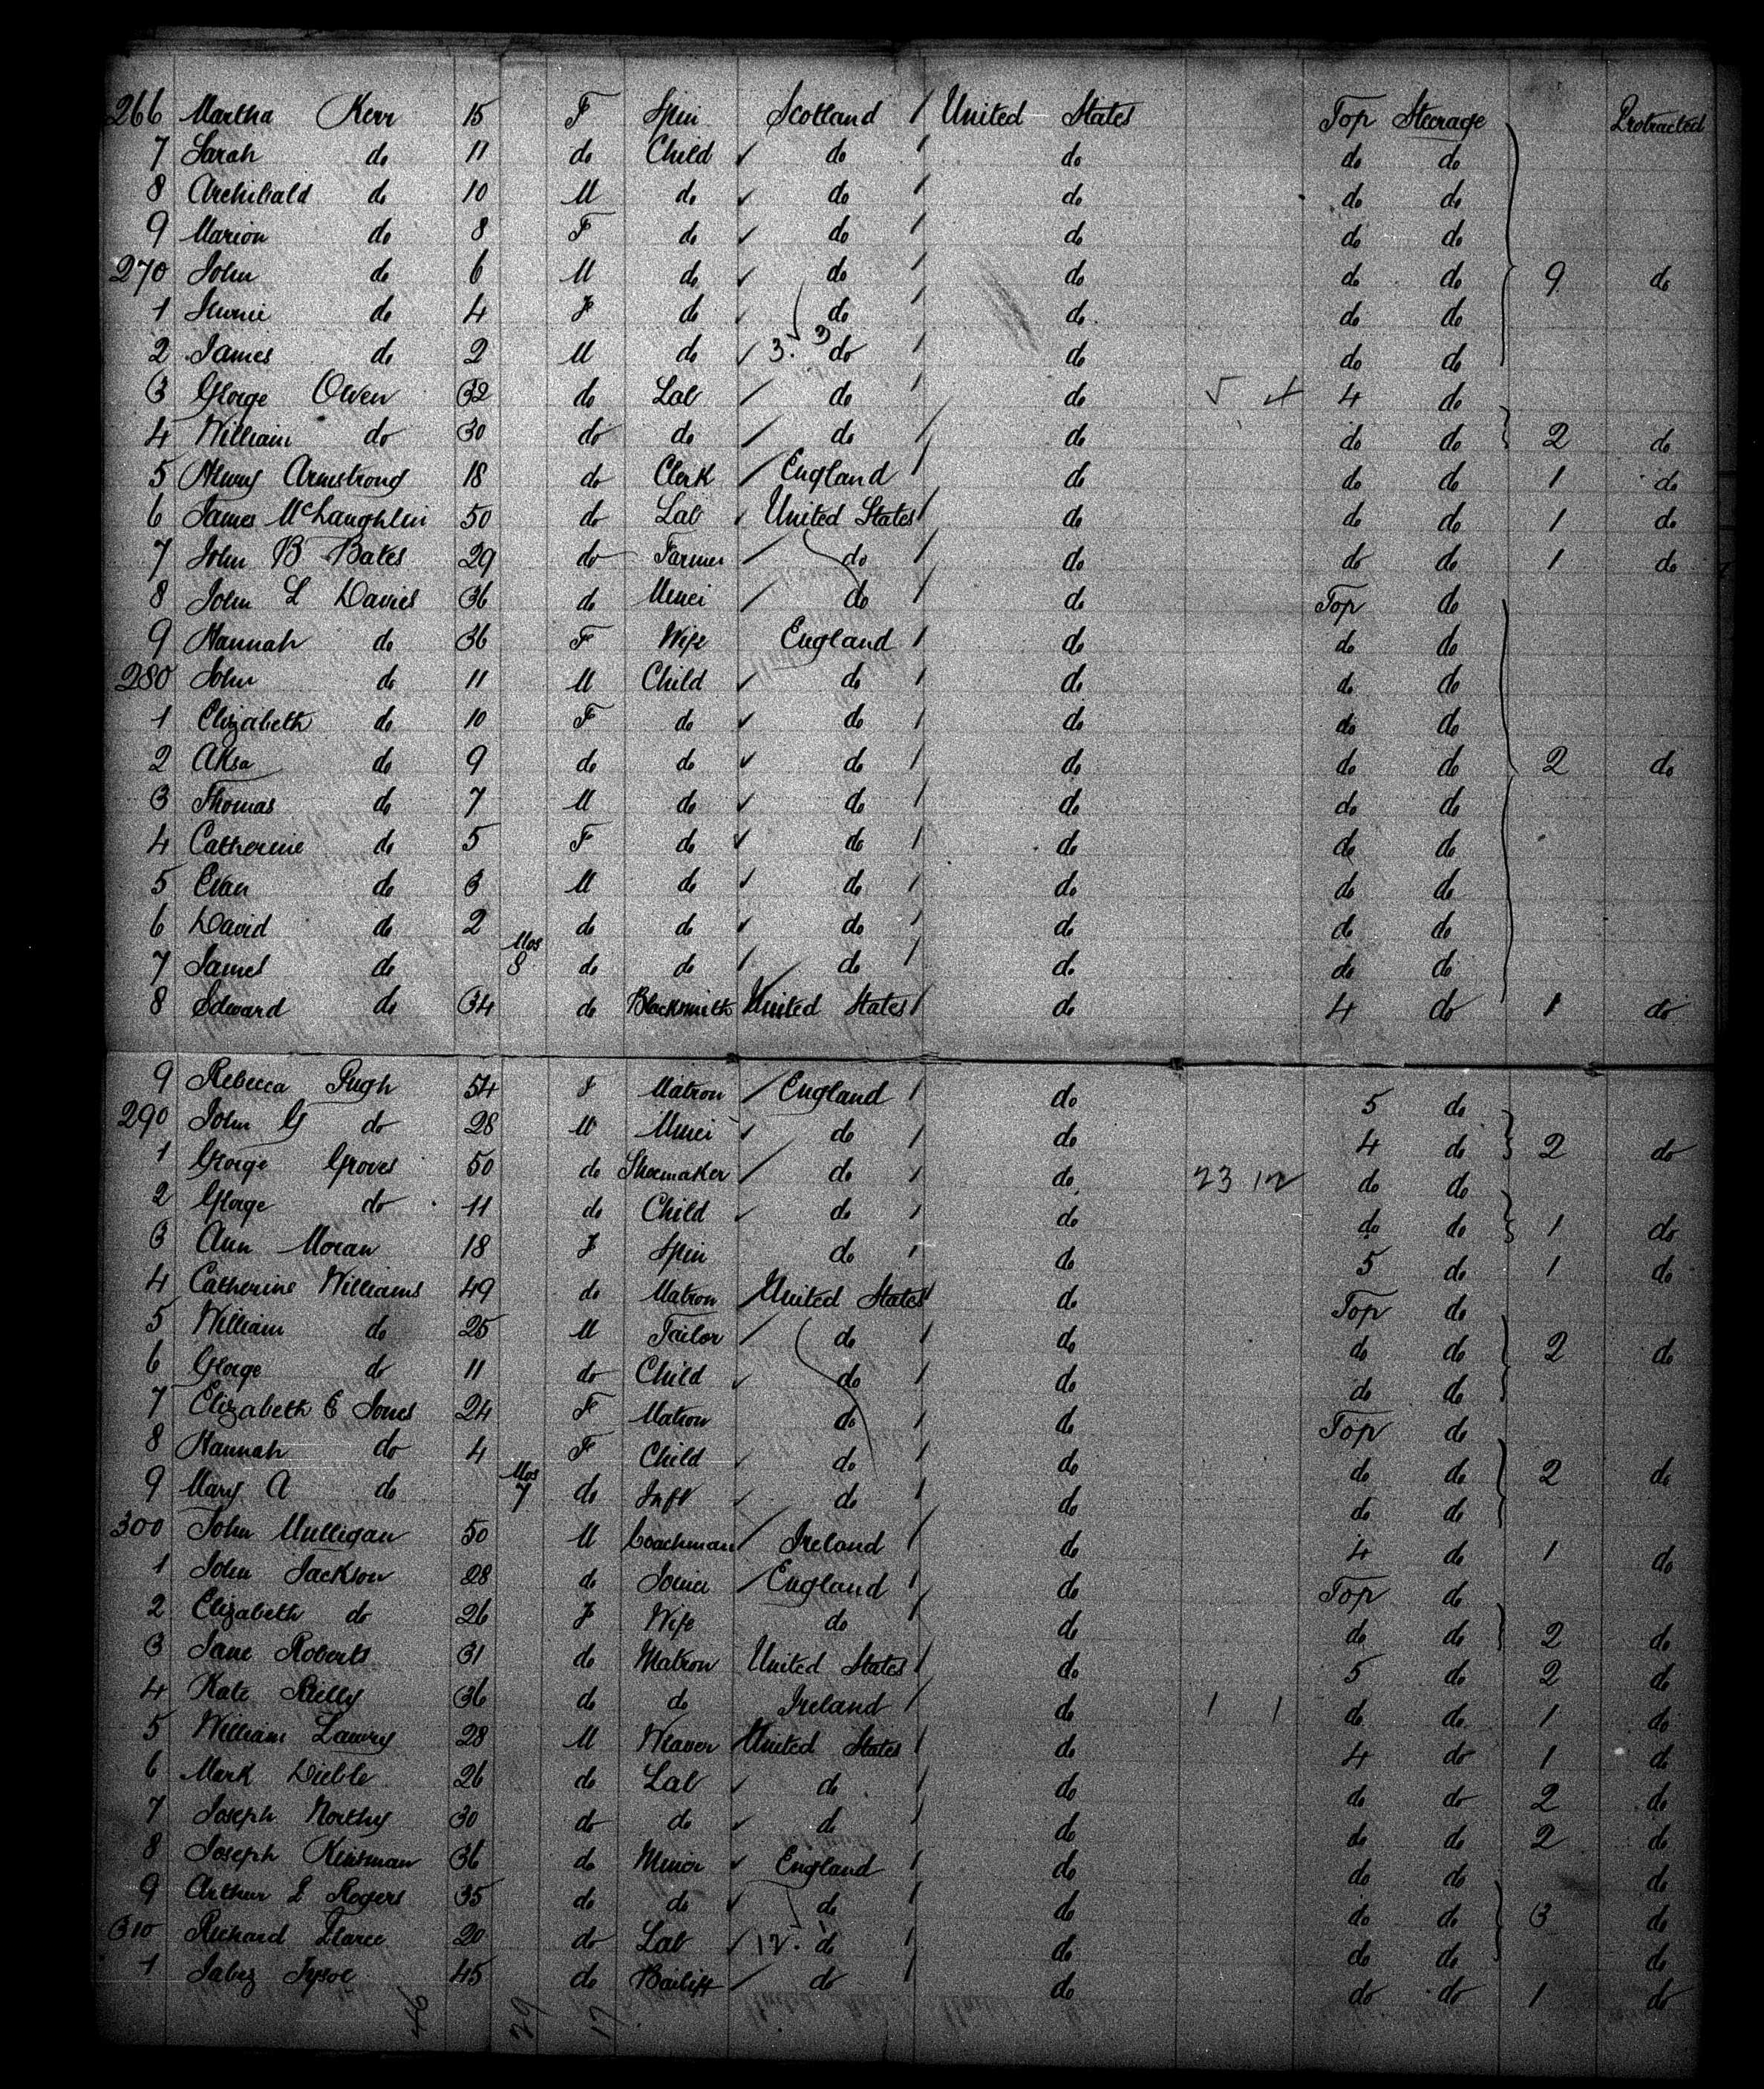 266 Martha Kerr 15 F Spin Scotland / United States Top Steerage Protracted
7 Sarah do 11 do Child ✓ do / do do do
8 Archibald do 10 M do ✓ do / do do do
9 Marion do 8 F do ✓ do / do do do
270 John do 6 M do ✓ do / do do do 9 do
1 do 4 F do ✓ do / do do do
2 James do 2 M do ✓ 3. do / do do do
3 George Owen 32 do Lab / do do 4 do
4 William do 30 do do / do / do do do 2 do
5 Henry Armstrong 18 do Clerk / England / do do do 1 do
6 James McLaughlin 50 do Lab ✓ United States / do do do 1 do
7 John B Bates 29 do Farmer / do / do do do 1 do
8 John L Davies 36 do Miner / do / do Top do
9 Hannah do 36 F Wife England / do do do
280 John do 11 M Child ✓ do / do do do
1 Elizabeth do 10 F do ✓ do / do do do
2 Aksa do 9 do do ✓ do / do do do 2 do
3 Thomas do 7 M do ✓ do / do do do
4 Catherine do 5 F do ✓ do / do do do
5 Evan do 3 M do ✓ do / do do do
6 David do 2 do do ✓ do / do do do
7 James do Mos 8 do do / do / do do do
8 Edward do 34 do Blacksmith United States / do 4 do 1 do
9 Rebecca Pugh 54 F Matron / England / do 5 do
290 John G do 28 M Miner ✓ do / do 4 do 2 do
1 George Groves 50 do Shoemaker / do / do 23 12 do do
2 George do 11 do Child ✓ do / do do do 1 do
3 Ann Moran 18 F Spin do / do 5 do 1 do
4 Catherine Williams 49 do Matron / United States / do Top do
5 William do 25 M Tailor / do / do do do 2 do
6 George do 11 do Child ✓ do / do do do
7 Elizabeth E Jones 24 F Matron do / do Top do
8 Hannah do 4 F Child ✓ do / do do do 2 do
9 Mary A do Mos 7 do Inft ✓ do / do do do
300 John Mulligan 50 M Coachman / Ireland / do 4 do 1 do
1 John Jackson 28 do Joiner / England / do Top do
2 Elizabeth do 26 F Wife do / do do do 2 do
3 Jane Roberts 31 do Matron United States / do 5 do 2 do
4 Kate Reilly 36 do do Ireland / do 1 1 do do 1 do
5 William Lawry 28 M Weaver United States / do 4 do 1 do
6 Mark 26 do Lab ✓ do / do do do 2 do
7 Joseph Northy 30 do do ✓ do / do do do 2 do
8 Joseph Kinsman 36 do Miner ✓ England / do do do do
9 Arthur L Rogers 35 do do ✓ do / do do do 3 do
310 Richard 20 do Lab ✓ 12. do / do do do do
1 Jabez Tysoe 45 do Bailiff / do / do do do 1 do
46 29 17